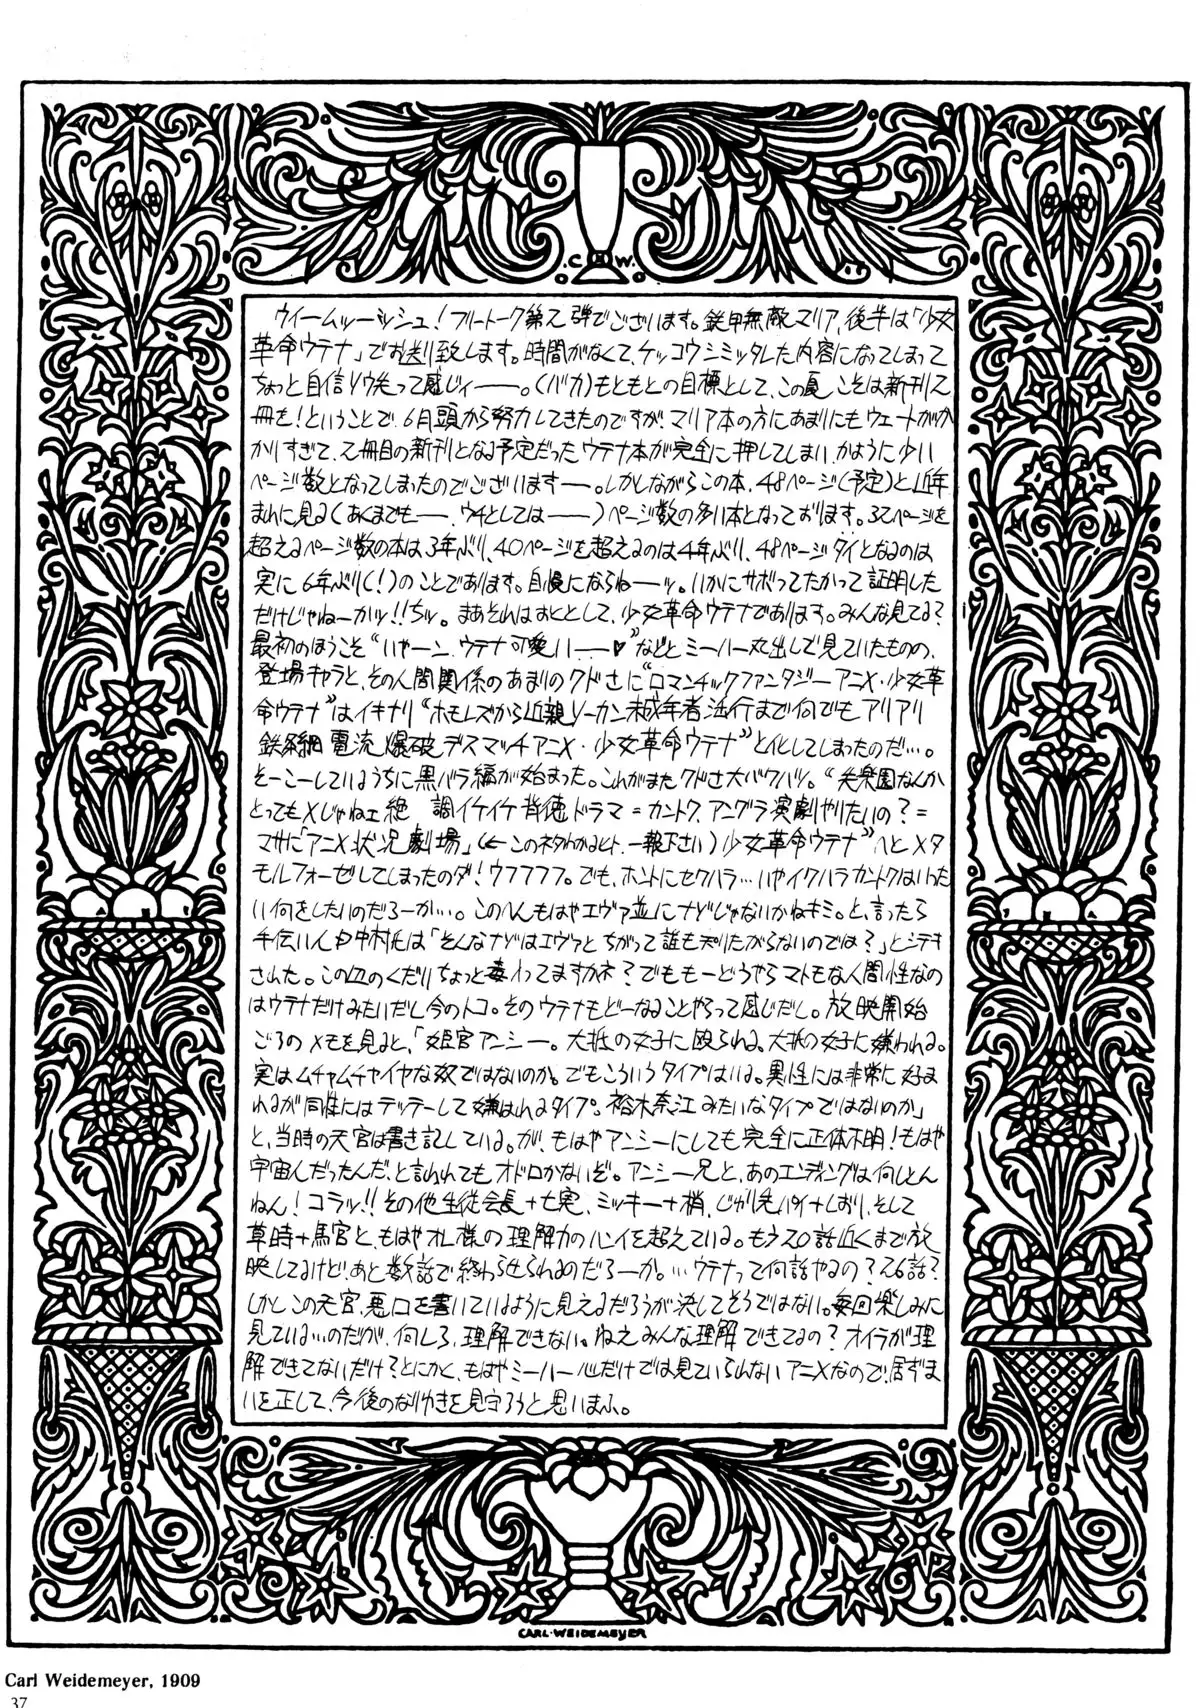 C W.
ウイームッーシュ!フリートーク第2弾でございます。鉄甲無敵マリア、後半は「少女
革命ウテナ」でお送り致します。時間がなくて、ケッコウシミッタレた内容になってしまって
ちょっと自信ソウ失って感じィー。(バカ)もともとの目標として、この夏こそは新刊2
冊を!ということで、6月頭から努力してきたのですが、マリア本の方にあまりにもウェートがか
かりすぎて、2冊目の新刊となる予定だったウテナ本が完全に押してしまい、かように少い
ページ数となってしまったのでございますー。しかしながらこの本、48ページ(予定)と近年
まれに見る(あくまでもー、ウチとしてはー)ページ数の多い本となっております。32ページを
超えるページ数の本は3年ぶり、40ページを超えるのは4年ぶり、48ページタイとなるのは
実に6年ぶり(!)のことであります。自慢にならねーッ。いかにサボってたかって証明した
だけじゃねーかッ!!ちッ。まあそれはおとして、少女革命ウテナであります。みんな見てる?
最初のほうこそ“いやーン、ウテナ可愛いー♥”などとミーハー丸出しで見ていたものの、
登場キャラと、その人間関係のあまりのクドさに“ロマンチックファンタジーアニメ・少女革
命ウテナ”はイキナリ“ホモレズから近親ソーカン未成年者淫行まで何でもアリアリ
鉄条網電流爆破デスマッチアニメ・少女革命ウテナ”と化してしまったのだ…。
そーこーしているうちに黒バラ編が始まった。これがまたクドさ大バクハツ。“失楽園なんか
とってもメじゃねェ絶調イケイケ背徳ドラマ=カントク、アングラ演劇やりたいの?=
マサに「アニメ状況劇場」(←このネタわかるヒト、一報下さい)少女革命ウテナ”へとメタ
モルフォーゼしてしまったのダ!ウフフフフ。でも、ホントにセクハラ…いやイクハラカントクはいった
い何をしたいのだろーか…。このへんもはやエヴァ並にナゾじゃないかねキミ。と、言ったら
手伝い人の中村氏は「そんなナゾはエヴァとちがって誰も知りたがらないのでは?」とシテキ
された。この辺のくだりちょっと毒入ってますかネ?でももーどうやらマトモな人間性なの
はウテナだけみたいだし今のトコ。そのウテナもどーなることやらって感じだし。放映開始
ごろのメモを見ると、「姫宮アンシー。大抵の女子に殴られる。大抵の女子に嫌われる。
実はムチャムチャイヤな奴ではないのか。でもこういうタイプはいる。異性には非常に好ま
れるが同性にはテッテーして嫌はれるタイプ。裕木奈江みたいなタイプではないのか」
と、当時の天宮は書き記している。が、もはやアンシーにしても完全に正体不明!もはや
宇宙人だったんだ、と言われてもオドロかないぞ。アンシー兄と、あのエンディングは何しとん
ねん!コラッ!!その他生徒会長+七実、ミッキー+梢、じゅり先パイ+しおり、そして
草時+馬宮と、もはやオレ様の理解力のハンイを超えている。もう20話近くまで放
映してるけど、あと数話で終わらせられるのだろーか。…ウテナって何話やるの?26話?
しかしこの天宮、悪口を書いているように見えるだろうが決してそうではない。毎回楽しみに
見ている…のだが、何しろ、理解できない。ねえみんな理解できてるの?オイラが理
解できてないだけ?とにかく、もはやミーハー心だけでは見ていられないアニメなので、居ずま
いを正して、今後のなりゆきを見守ろうと思いまふ。
CARL·WEIDEMEYER
Carl Weidemeyer, 1909
37